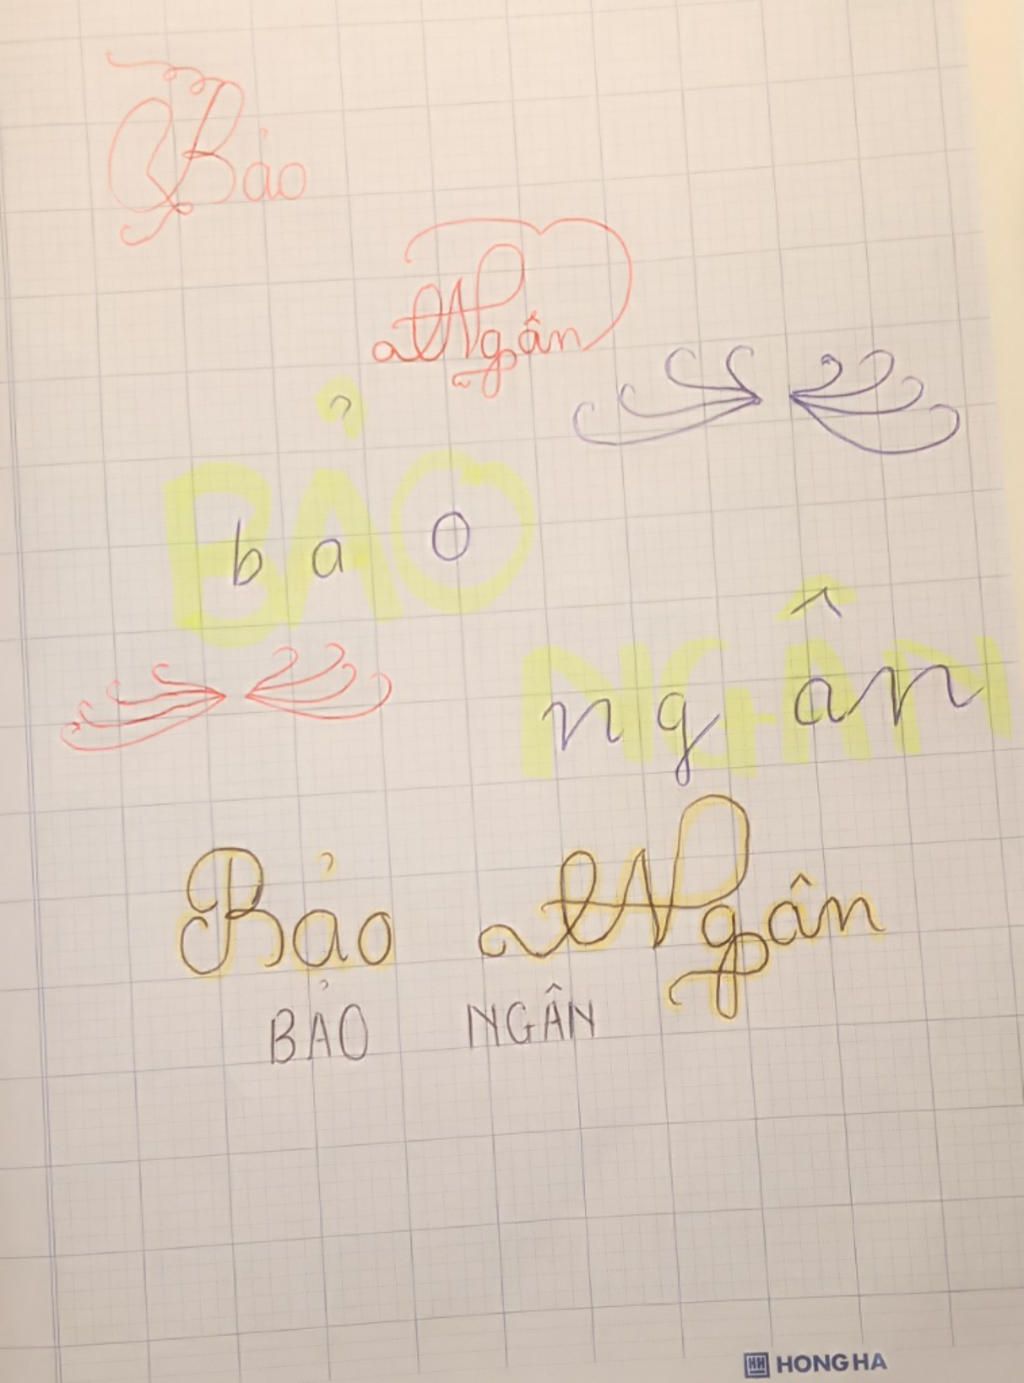 Bảo
Ngân
BẢO
bảo
NGÂN
ngân
Bảo Ngân
BẢO NGÂN
HH HONG HA